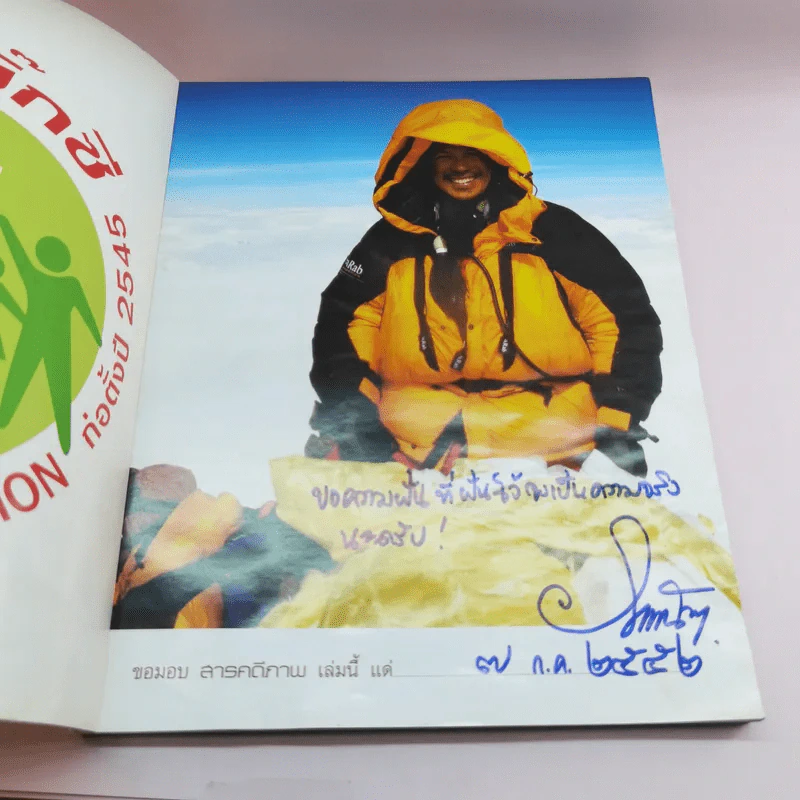 ก่อตั้งปี 2545
ION
Rab
ขอความฝัน ที่ฝันไว้ จงเป็นความจริง
นะครับ !
๗ ก.ค. ๒๕๕๒
ขอมอบ สารคดีภาพ เล่มนี้ แด่